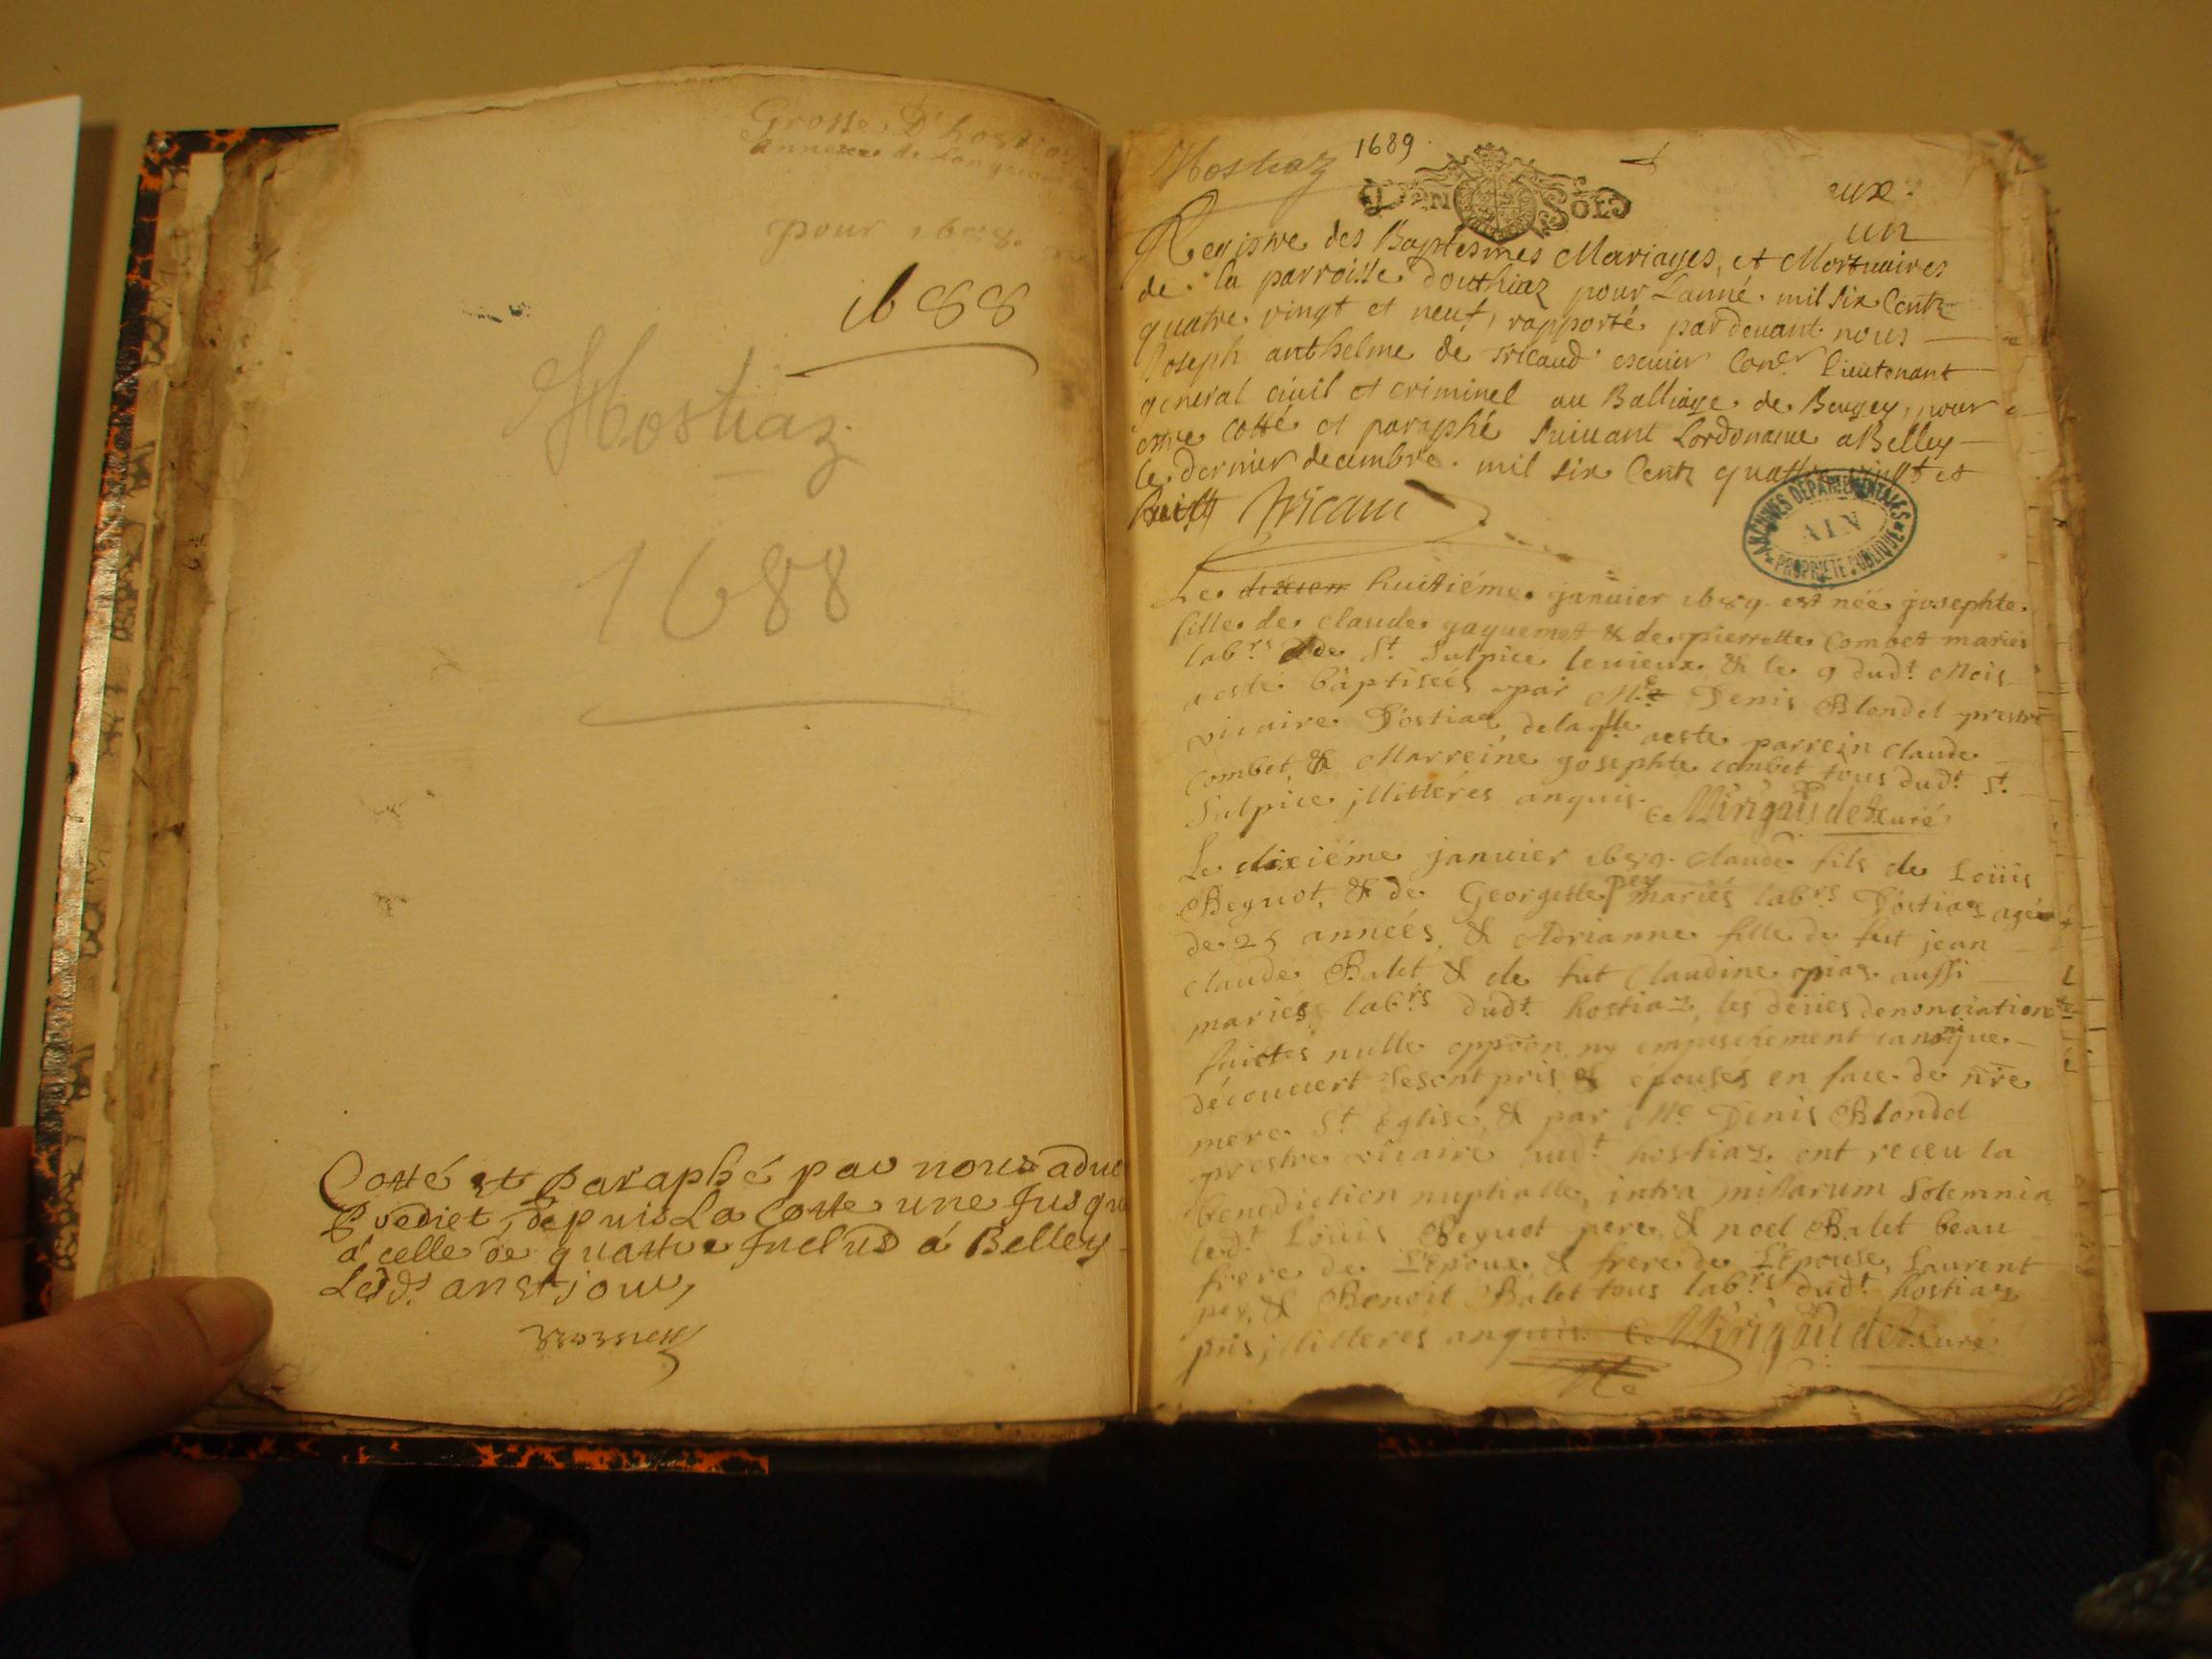 Grosse D'hostiaz
annexe de Longecombe
pour 1688.
1688
Hostiaz
1688
Cotté et Paraphé par nous advo
depuis La Cotte une Jusqu
a celle de quattre Inclus a Belley
Lesd. an et jour,
Hostiaz 1689.
Den Sols
un
Registre des Baptesmes Mariages, et Mortuaires
de la parroisse douthiaz pour Lanné mil six Centz
quatre vingt et neuf, rapporté pardeuant nous
Joseph anthelme de tricaud escuier Conr. Lieutenant
general ciuil et criminel au Balliage de Beugey, pour
estre cotté et paraphé suiuant Lordonance a Belley
le dernier decembre mil six Centz quattre vingt et
huict Tricaud
ARCHIVES DÉPARTEMENTALES
AIN
PROPRIÉTÉ PUBLIQUE
Le dixiem huitiéme januier 1689 est néé josephte
fille de claude gaguemet & de pierrette Combet mariés
labrs de St. Sulpice le uieux & le 9 dudt. Mois
a esté baptiseés par Mre Denis Blondel prestre
vicaire D'ostiaz, de laqlle a este parrein claude
combet & Marreine josephte combet tous dudt. St.
Sulpice jllitterés enquis. Mirigaudet curé
Le dixiéme januier 1689. claude fils de Loüis
Beguot, & de Georgette pey mariés labrs. D'ostiaz agéé
de 25 annéés, & Adrianne fille de fut jean
claude Balet & de fut Claudine piaz aussi
mariés labrs dudt. hostiaz, les deües denonciations
faictes nulle oppoon ny empeschement canonique
décounert se sont pris & epousés en face de nre
mere St. Eglise, & par Me Denis Blondel
prestre vicaire audt. hostiaz, ont receu la
benediction nuptialle, intra missarum Solemnia
ledt. Loüis Beguot pere, & noel Balet beau
frere de L'epoux, & frere de L'Epouse, Laurent
pey, & Benoit Balet tous labrs. dudt. hostiaz
pns, jllitterés enquis. Mirigaudet curé